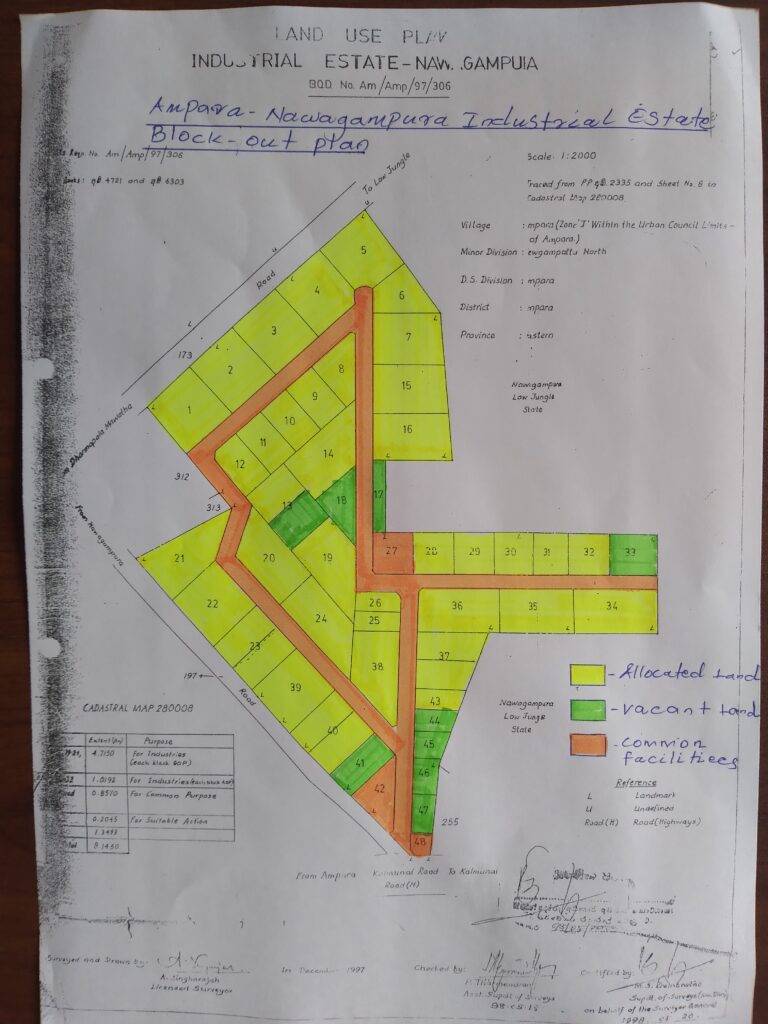 LAND USE PLAN
INDUSTRIAL ESTATE-NAW. .GAMPU
BQD No. Am/Amp/97/306
Ampara - Nawagampura Industrial Estate
Block-out plan
No. Am/Amp/97/306
4721 and 6303
Scale: 1:2000
Traced from PP 2335 and Sheet No. 8 in
Cadastral Map 280008
Village : mpara (Zone 'J' Within the Urban Council Limits-
of Ampara.)
Minor Division : ewgampattu North
D.S. Division : mpara
District : mpara
Province : astern
To Low Jungle
Road
173
Dharmapala Mawatha
312
313
From Nawagampura
197
Road
Nawagampura
Low Jungle
State
1
2
3
4
5
6
7
8
9
10
11
12
13
14
15
16
17
18
19
20
21
22
23
24
25
26
27
28
29
30
31
32
33
34
35
36
37
38
39
40
41
42
43
44
45
46
47
48
255
Nawagampura
Low Jungle
State
- Allocated Land
- vacant Land
- Common
facilities
Reference
L Landmark
U Undefined
Road (H) Road (Highways)
CADASTRAL MAP 280008
Extent (Ha) Purpose
4.7150 For Industries
1.0192 For Industries
0.8570 For Common Purpose
0.2045 For Suitable Action
From Ampara Kalmunai Road To Kalmunai
Road (H)
Surveyed and Drawn by:
A. Singharajah
Licensed Surveyor
In December 1997
Checked by:
Asst. Supdt. of Surveys
98.05.15
Certified by:
Supdt. of Surveys
on behalf of the Surveyor General